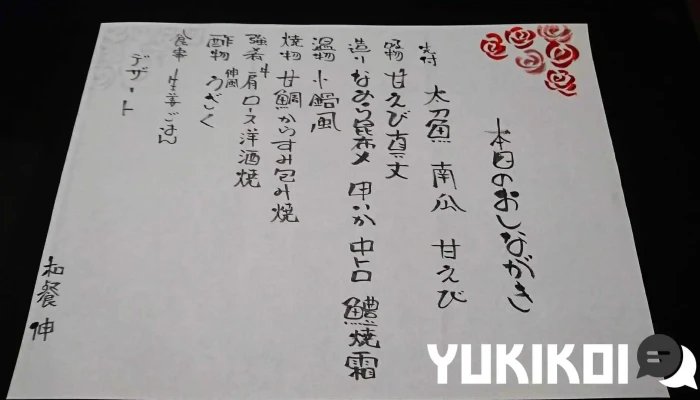 本日のおしながき
先付 太刀魚 南瓜 甘えび
鍋物 甘えび真丈
造り なめら昆布〆 甲いか 中トロ 鱧焼霜
温物 小鍋風
焼物 甘鯛からすみ包み焼
強肴 牛肩ロース洋酒焼
酢物 伸風うざく
食事 生姜ごはん
デザート
和餐 伸
YUKIKOI